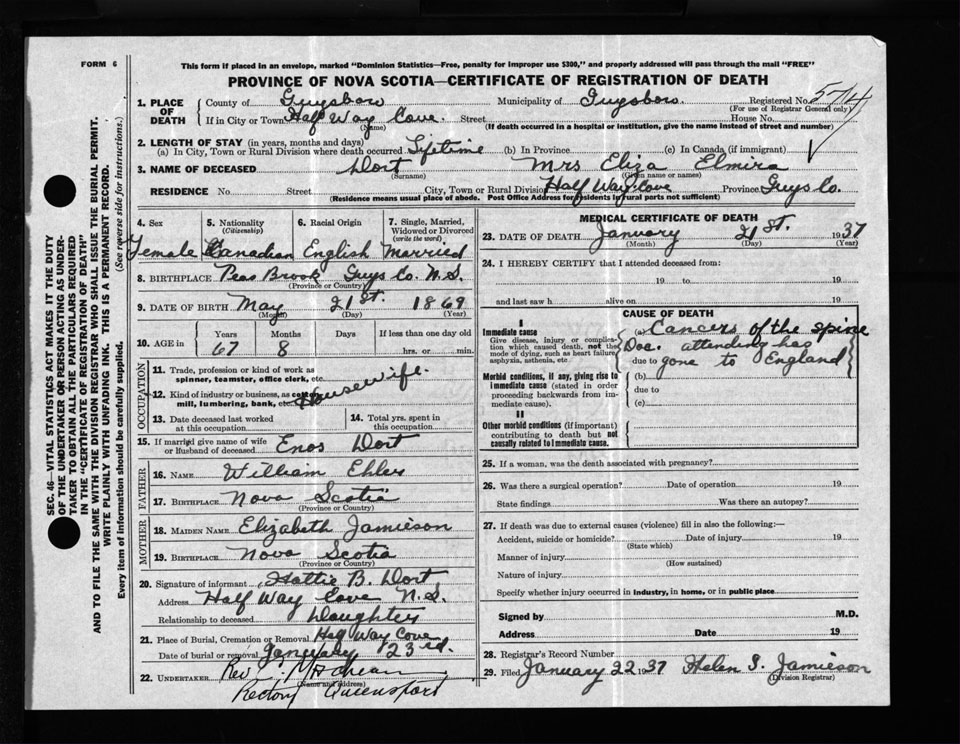 FORM 6
This form if placed in an envelope, marked "Dominion Statistics—Free, penalty for improper use $300," and properly addressed will pass through the mail "FREE"
PROVINCE OF NOVA SCOTIA—CERTIFICATE OF REGISTRATION OF DEATH
SEC. 46—VITAL STATISTICS ACT MAKES IT THE DUTY
OF THE UNDERTAKER OR PERSON ACTING AS UNDER-
TAKER TO OBTAIN ALL THE PARTICULARS REQUIRED
IN THE "CERTIFICATE OF REGISTRATION OF DEATH"
AND TO FILE THE SAME WITH THE DIVISION REGISTRAR WHO SHALL ISSUE THE BURIAL PERMIT.
WRITE PLAINLY WITH UNFADING INK. THIS IS A PERMANENT RECORD.
Every item of information should be carefully supplied. (See reverse side for instructions.)
1. PLACE OF DEATH County of Guysboro Municipality of Guysboro. Registered No. 5714
(For use of Registrar General only)
If in City or Town Half Way Cove. Street House No.
(Name) (If death occurred in a hospital or institution, give the name instead of street and number)
2. LENGTH OF STAY (in years, months and days)
(a) In City, Town or Rural Division where death occurred Lifetime (b) In Province (c) In Canada (if immigrant)
3. NAME OF DECEASED Dort Mrs Eliza Elmira
(Surname) (Given name or names)
RESIDENCE No. Street City, Town or Rural Division Half Way Cove Province Guys Co.
(Residence means usual place of abode. Post Office Address for residents in rural parts not sufficient)
4. Sex 5. Nationality (Citizenship) 6. Racial Origin 7. Single, Married, Widowed or Divorced (write the word)
Female Canadian English Married
8. BIRTHPLACE Peas Brook Guys Co. N.S.
(Province or Country)
9. DATE OF BIRTH May 21st. 1869
(Month) (Day) (Year)
10. AGE in Years Months Days If less than one day old
67 8 hrs. or min.
OCCUPATION
11. Trade, profession or kind of work as spinner, teamster, office clerk, etc.
12. Kind of industry or business, as cotton mill, lumbering, bank, etc. Housewife.
13. Date deceased last worked at this occupation
14. Total yrs. spent in this occupation
15. If married give name of wife or husband of deceased Enos Dort
FATHER
16. NAME William Ehler
17. BIRTHPLACE Nova Scotia
(Province or Country)
MOTHER
18. MAIDEN NAME Elizabeth Jamieson
19. BIRTHPLACE Nova Scotia
(Province or Country)
20. Signature of informant Hattie B. Dort
Address Half Way Cove N.S.
Relationship to deceased Daughter
21. Place of Burial, Cremation or Removal Half Way Cove
Date of burial or removal January 23rd.
22. UNDERTAKER Rev
(Name and address)
Rectory Queensport
MEDICAL CERTIFICATE OF DEATH
23. DATE OF DEATH January 21st. 1937
(Month) (Day) (Year)
24. I HEREBY CERTIFY that I attended deceased from:
19 to 19
and last saw h alive on 19
CAUSE OF DEATH
I
Immediate cause
Give disease, injury, or complication which caused death, not the mode of dying, such as heart failure, asphyxia, asthenia, etc.
(a) Cancers of the spine
Doc. attending has
due to gone to England
Morbid conditions, if any, giving rise to immediate cause (stated in order proceeding backwards from immediate cause).
(b)
due to
(c)
II
Other morbid conditions (if important) contributing to death but not causally related to immediate cause.
25. If a woman, was the death associated with pregnancy?
26. Was there a surgical operation? Date of operation 19
State findings Was there an autopsy?
27. If death was due to external causes (violence) fill in also the following:—
Accident, suicide or homicide? Date of injury 19
(State which)
Manner of injury
(How sustained)
Nature of injury
Specify whether injury occurred in industry, in home, or in public place
Signed by M.D.
Address Date 19
28. Registrar's Record Number
29. Filed January 22 1937 Helen S. Jamieson
(Division Registrar)